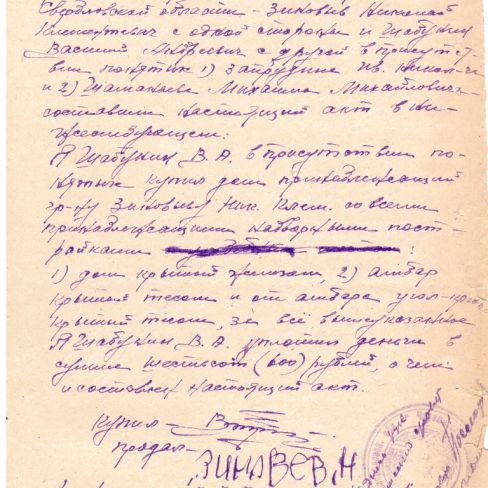 Свердловской области – Зиновьев Николай
Климентьевич с одной стороны и Шабунин
Василий Андреевич с другой в присутст-
вии понятых 1) Запрудина Ив. Никол-ч
и 2) Шаманаева Михаила Михайловича
составили настоящий акт в ни-
жеследующем:
Я Шабунин В. А. в присутствии по-
нятых купил дом принадлежащий
гр-ну Зиновьеву Ник. Клем. со всеми
принадлежащими надворными пост-
ройками :
1) дом крытый железом, 2) амбар
крытый тесом и от амбара угол
крытый тесом, за всё вышеуказанное
Я Шабунин В. А. уплатил деньги в
сумме шестьсот (600) рублей, о чем
и составлен настоящий акт.
Купил –
продал –
ЗИНОВЕВ Н